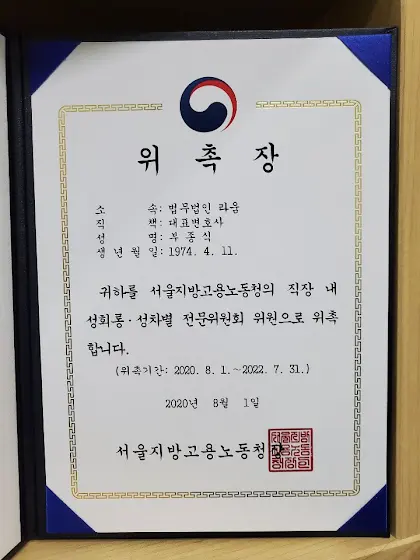 위 촉 장
소 속: 법무법인 라움
직 책: 대표변호사
성 명: 부 종 식
생 년 월 일: 1974. 4. 11.
귀하를 서울지방고용노동청의 직장 내
성희롱·성차별 전문위원회 위원으로 위촉
합니다.
(위촉기간: 2020. 8. 1.~2022. 7. 31.)
2020년 8월 1일
서울지방고용노동청장